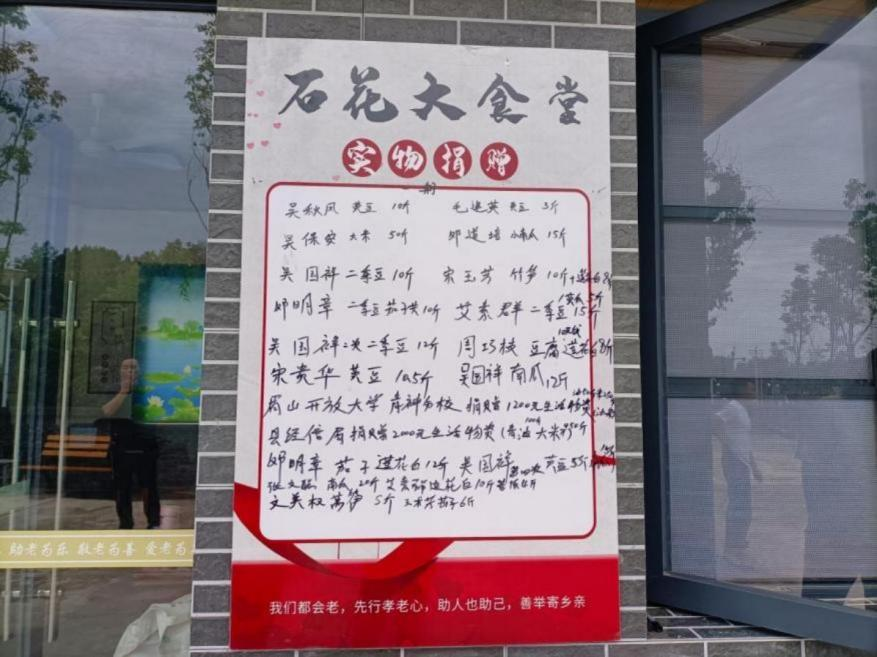 石花大食堂
实物捐赠
吴秋风 黄豆 10斤 毛建英 黄豆 3斤
吴保安 大米 50斤 邓道培 小南瓜 15斤
吴国祥 二季豆 10斤 宋玉芳 竹笋 10斤
邓明章 二季豆茄子共10斤 艾素群 二季豆 15斤
吴国祥 二次 二季豆 12斤 周巧枝 豆腐 莲花白8斤
宋贵华 黄豆 10.5斤 吴国祥 南瓜 12斤
眉山开放大学青神分校 捐赠1200元生活物资
县经信局捐赠2000元生活物资(青油 大米
邓明章 茄子莲花白12斤 吴国祥 第四次 黄豆5斤
南瓜 20斤 艾素群莲花白10斤
文美权 莴笋 5斤 茄子6斤
我们都会老，先行孝老心，助人也助己，善举寄乡亲
助老为乐 敬老为善 爱老为